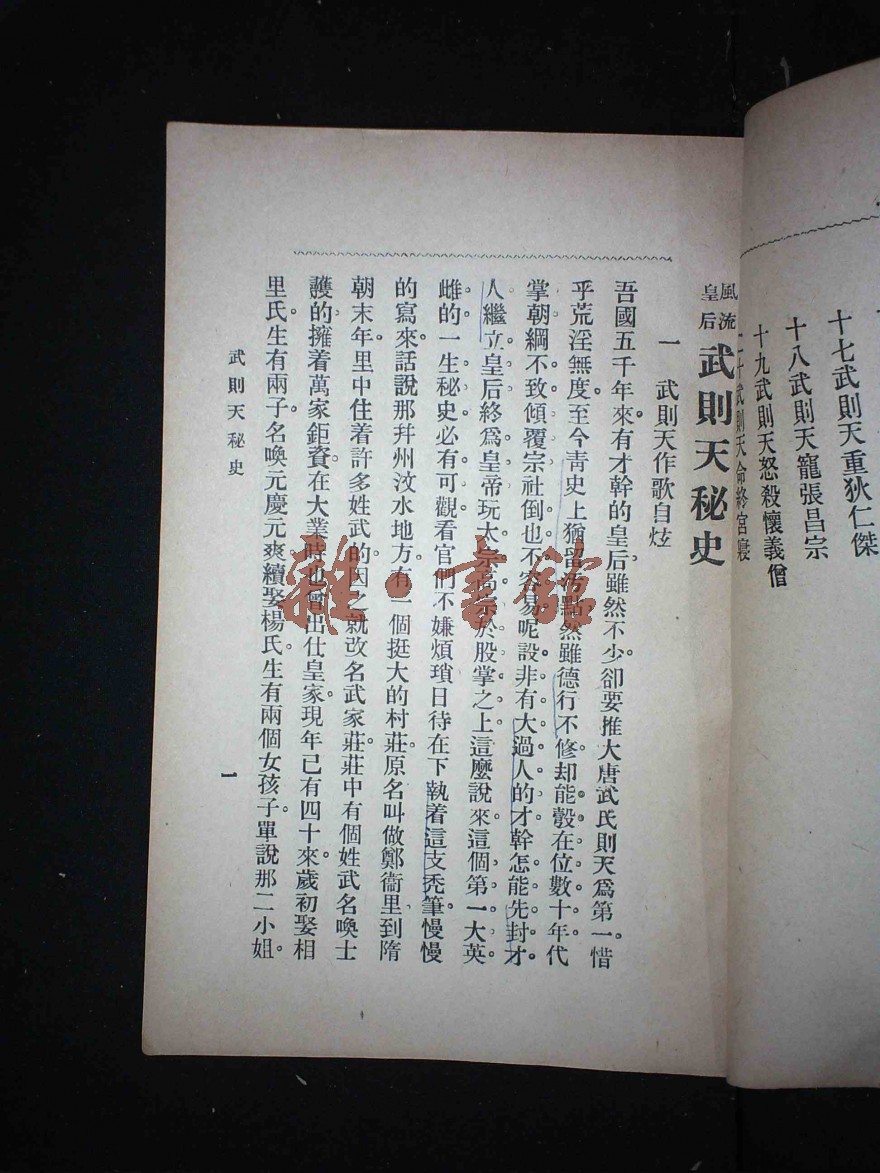 十七武則天重狄仁傑
十八武則天寵張昌宗
十九武則天怒殺懷義僧
二十武則天命終宮寢
風流皇后 武則天秘史
一 武則天作歌自炫
吾國五千年來有才幹的皇后雖然不少卻要推大唐武氏則天爲第一惜
乎荒淫無度至今靑史上猶留污點然雖德行不修却能彀在位數十年代
掌朝綱不致傾覆宗社倒也不容易呢設非有大過人的才幹怎能先封才
人繼立皇后終爲皇帝玩太宗高宗於股掌之上這麼說來這個第一大英
雌的一生秘史必有可觀看官們不嫌煩瑣日待在下執着這支禿筆慢慢
的寫來話說那幷州汶水地方有一個挺大的村莊原名叫做鄭衞里到隋
朝末年里中住着許多姓武的因之就改名武家莊莊中有個姓武名喚士
彠的擁着萬家鉅資在大業時也曾出仕皇家現年已有四十來歲初娶相
里氏生有兩子名喚元慶元爽續娶楊氏生有兩個女孩子單說那二小姐
武則天秘史
一
雜·書館